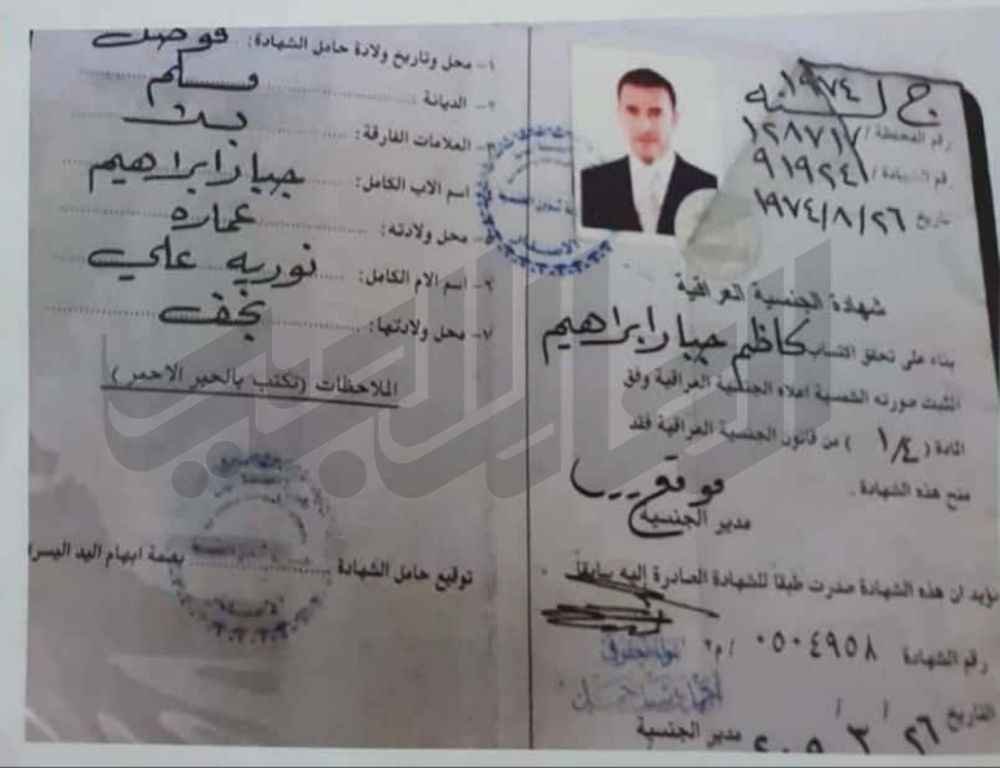 ج لسنة ١٩٧٤
رقم المحفظة / ١٢٨٧١٧
رقم الشهادة / ٩١٩٢٤١
تاريخ ١٩٧٤/٨/٢٦
شهادة الجنسية العراقية
بناء على تحقق اكتساب كاظم جبار ابراهيم
المثبت صورته الشمسية اعلاه الجنسية العراقية وفق
المادة ( ١/٤ ) من قانون الجنسية العراقية فقد
منح هذه الشهادة .
موقع
مدير الجنسية
نؤيد ان هذه الشهادة صدرت طبقاً للشهادة الصادرة إليه سابقاً .
رقم الشهادة ٠٥٠٤٩٥٨ / م٢
التاريخ ٢٦ / ٣ /
مدير الجنسية
١- محل وتاريخ ولادة حامل الشهادة:
٢- الديانة : مسلم
٣- العلامات الفارقة:
٤- اسم الاب الكامل: جبار ابراهيم
٥- محل ولادته: عماره
٦- اسم الام الكامل: نوريه علي
٧- محل ولادتها: نجف
الملاحظات (تكتب بالحبر الاحمر)
توقيع حامل الشهادة بصمة ابهام اليد اليسر
الاصدار